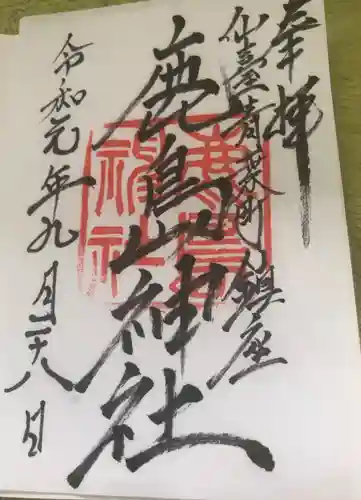 奉拝
仙臺青葉町鎮座
鹿島神社
鹿島
神社
令和元年九月二十八日